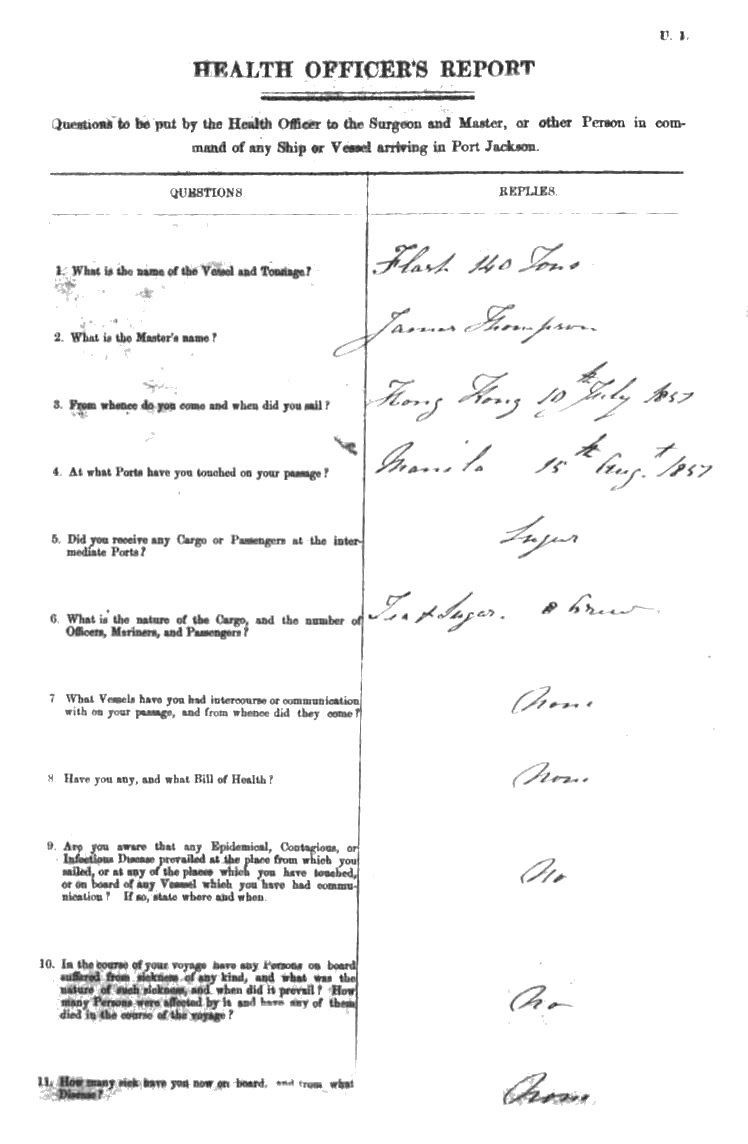 U. 1.
HEALTH OFFICER'S REPORT
Questions to be put by the Health Officer to the Surgeon and Master, or other Person in com-
mand of any Ship or Vessel arriving in Port Jackson.
QUESTIONS
REPLIES.
1. What is the name of the Vessel and Tonnage?
Flash 140 Tons
2. What is the Master's name?
James Thompson
3. From whence do you come and when did you sail?
Hong Kong 10th July 1857
4. At what Ports have you touched on your passage?
Manila 15th Augt 1857
5. Did you receive any Cargo or Passengers at the inter-
mediate Ports?
Sugar
6. What is the nature of the Cargo, and the number of
Officers, Mariners, and Passengers?
Tea & Sugar. 8 Crew
7 What Vessels have you had intercourse or communication
with on your passage, and from whence did they come?
None
8 Have you any, and what Bill of Health?
None
9. Are you aware that any Epidemical, Contagious, or
Infectious Disease prevailed at the place from which you
sailed, or at any of the places which you have touched,
or on board of any Vessel which you have had commu-
nication? If so, state where and when.
No
10. In the course of your voyage have any Persons on board
suffered from sickness of any kind, and what was the
nature of such sickness, and when did it prevail? How
many Persons were affected by it and have any of them
died in the course of the voyage?
No
11. How many sick have you now on board, and from what
Disease?
None